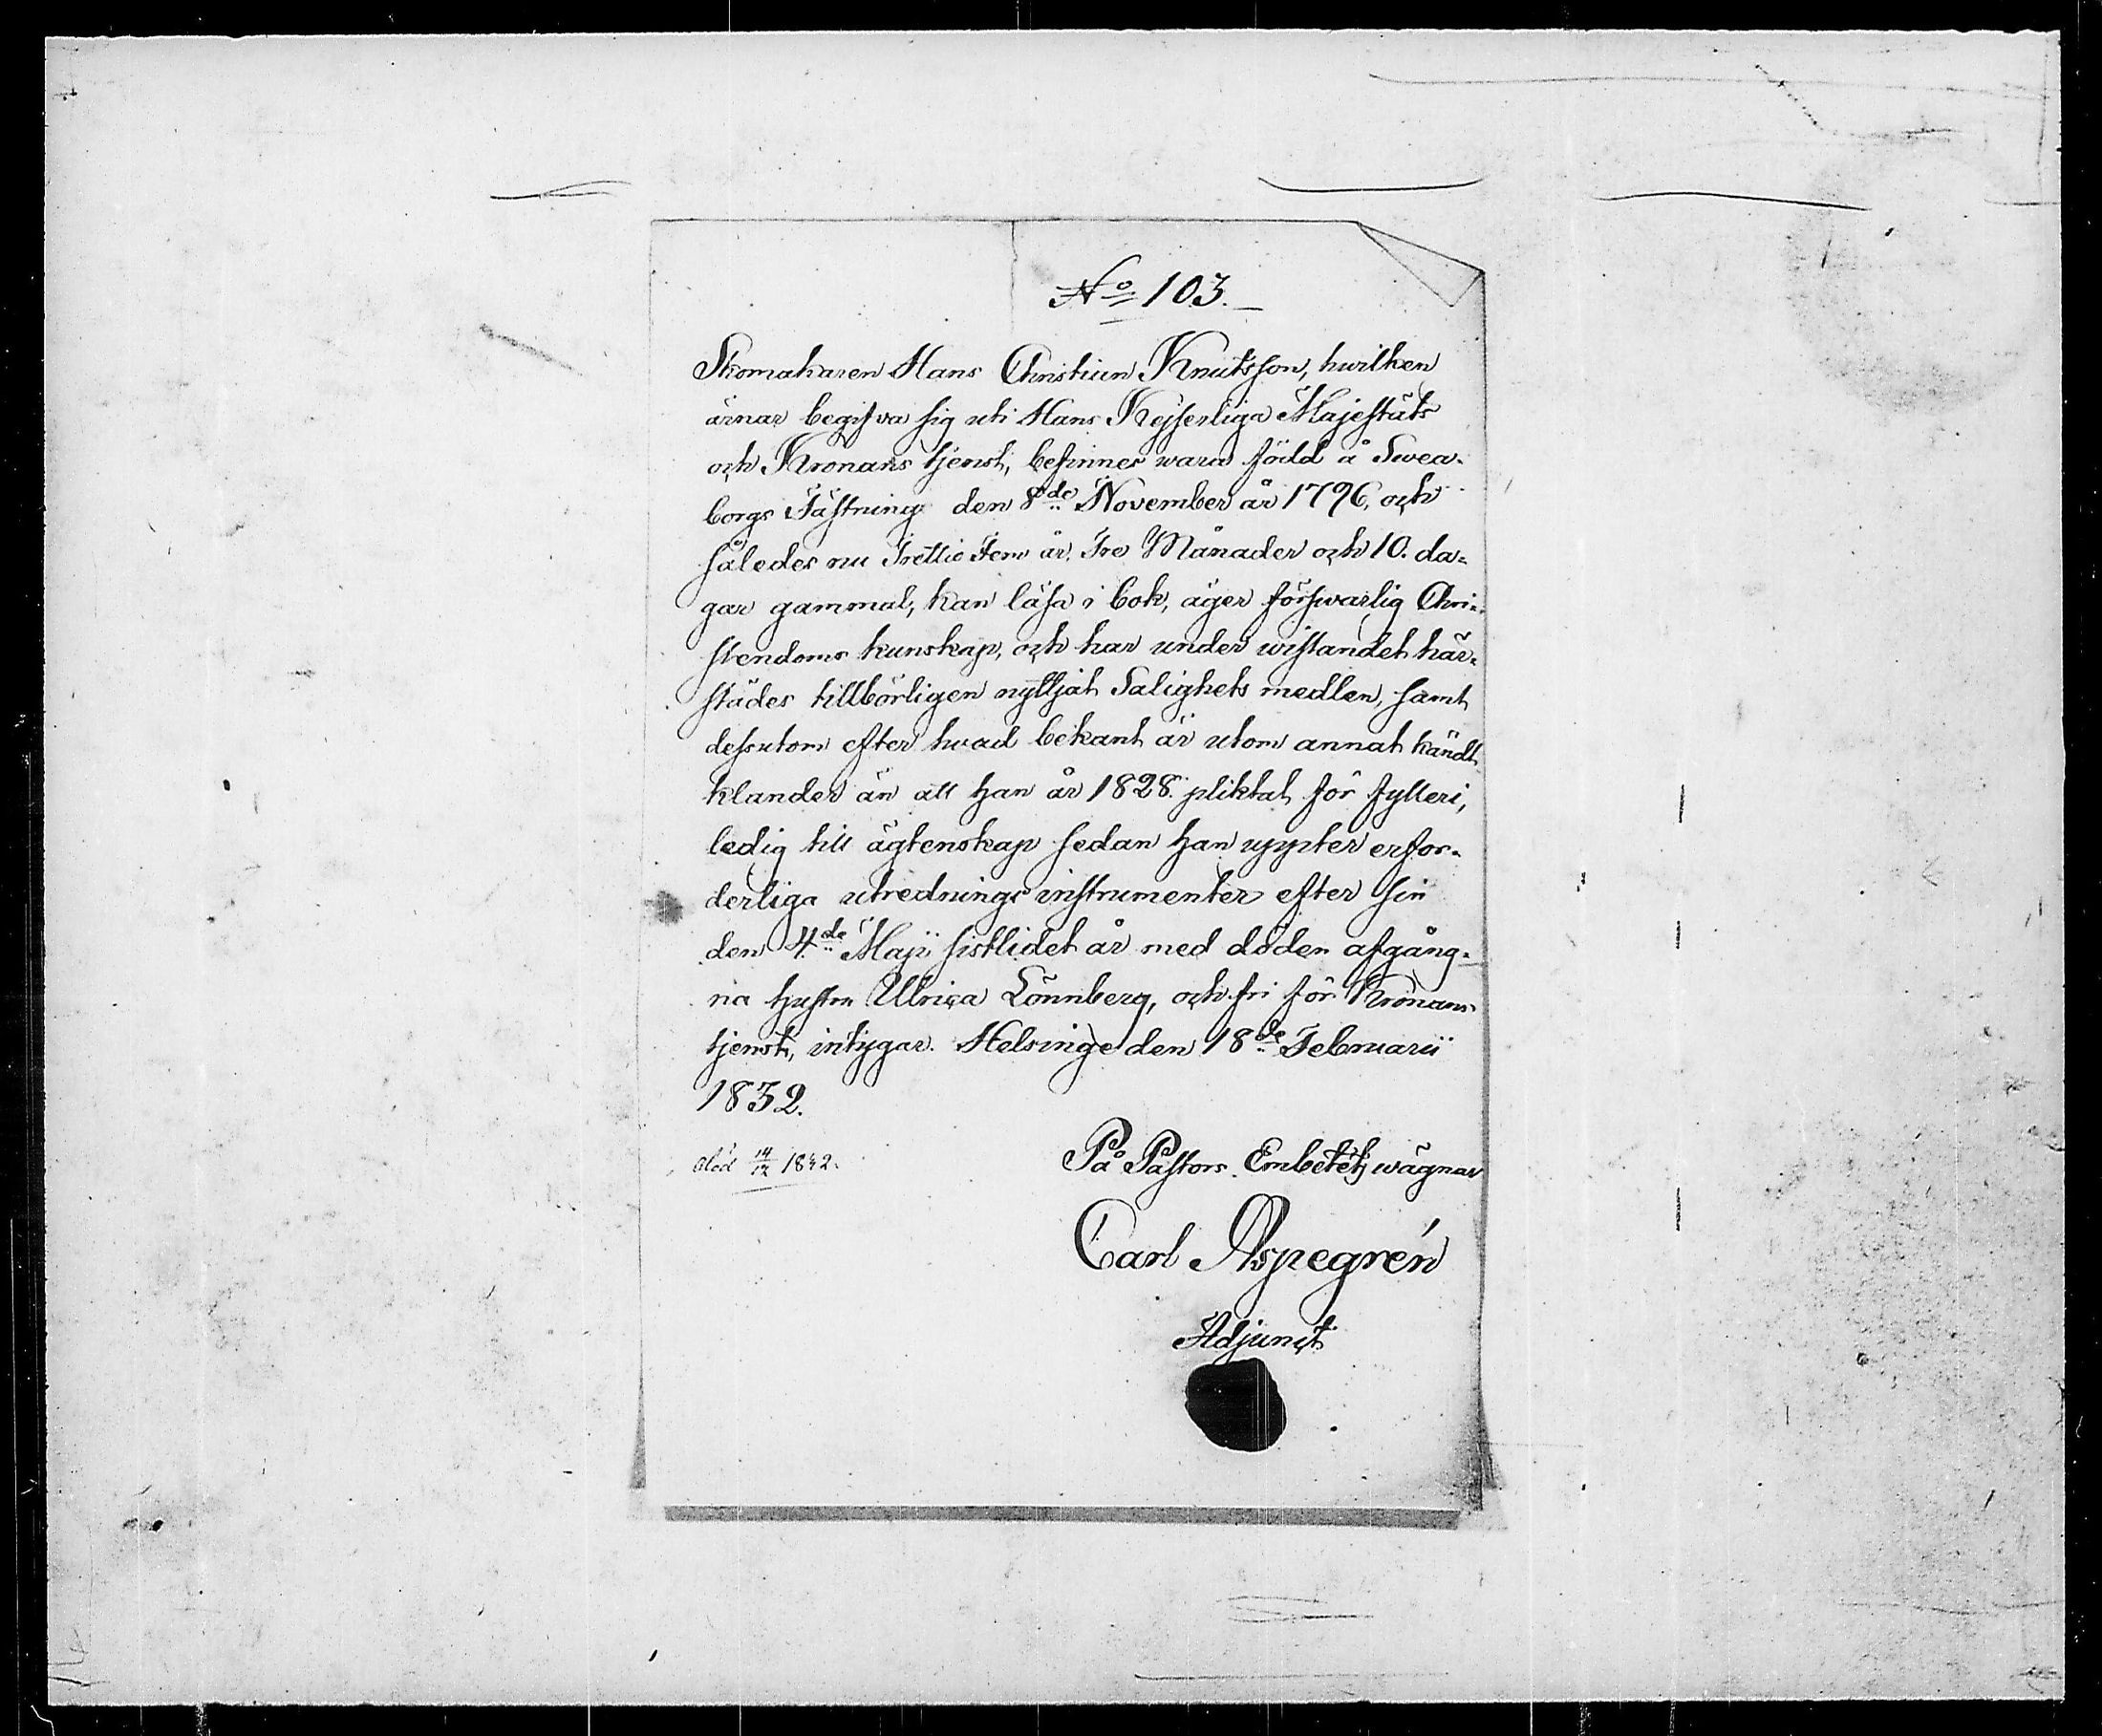 No 103.
Skomakaren Hans Christian Knutsson, hwilken
ärnar begifva sig uti Hans Kejserliga Majestäts
och Kronans tjenst, befinnes wara född å Swea-
borgs Fästning den 8de November år 1796, och
således nu Trettio Fem år, Tre Månader och 10. da-
gar gammal, kan läsa i bok, äger förswarlig Chri-
stendoms kunskap, och har under wistandet här-
städes tillbörligen nyttjat Salighets medlen, samt
dessutom efter hwad bekant är utom annat kändt
klander än att han år 1828. pliktat för fylleri,
ledig till ägtenskap sedan han uppter erfor-
derliga utrednings instrumenter efter sin
den 4de Maji sistlidet år med döden afgång-
na hustru Ulrica Lönnberg, och fri för Kronans
tjenst, intygar. Helsinge den 18de Februarii
1832.
död 14/12 1842.
På Pastors Embetets wägnar
Carl Aspegrén
Adjunct